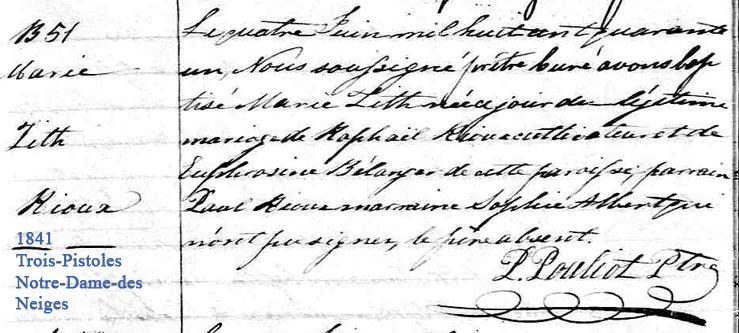 B 51
Marie
Zith
Rioux
1841
Trois-Pistoles
Notre-Dame-des
Neiges
Le quatre Juin mil huit cent quarante
un, Nous soussigné prêtre curé avons bap
tisé Marie Zith née ce jour du légitime
mariage de Raphaël Rioux cultivateur et de
Euphrosine Bélanger de cette paroisse parrain
Paul Rioux marraine Sophie Albert qui
n'ont pu signer, le père absent.
P. Pouliot Ptre